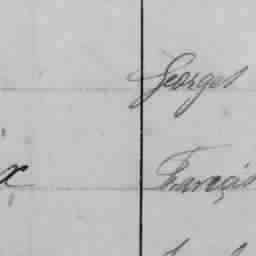 Georges
x François